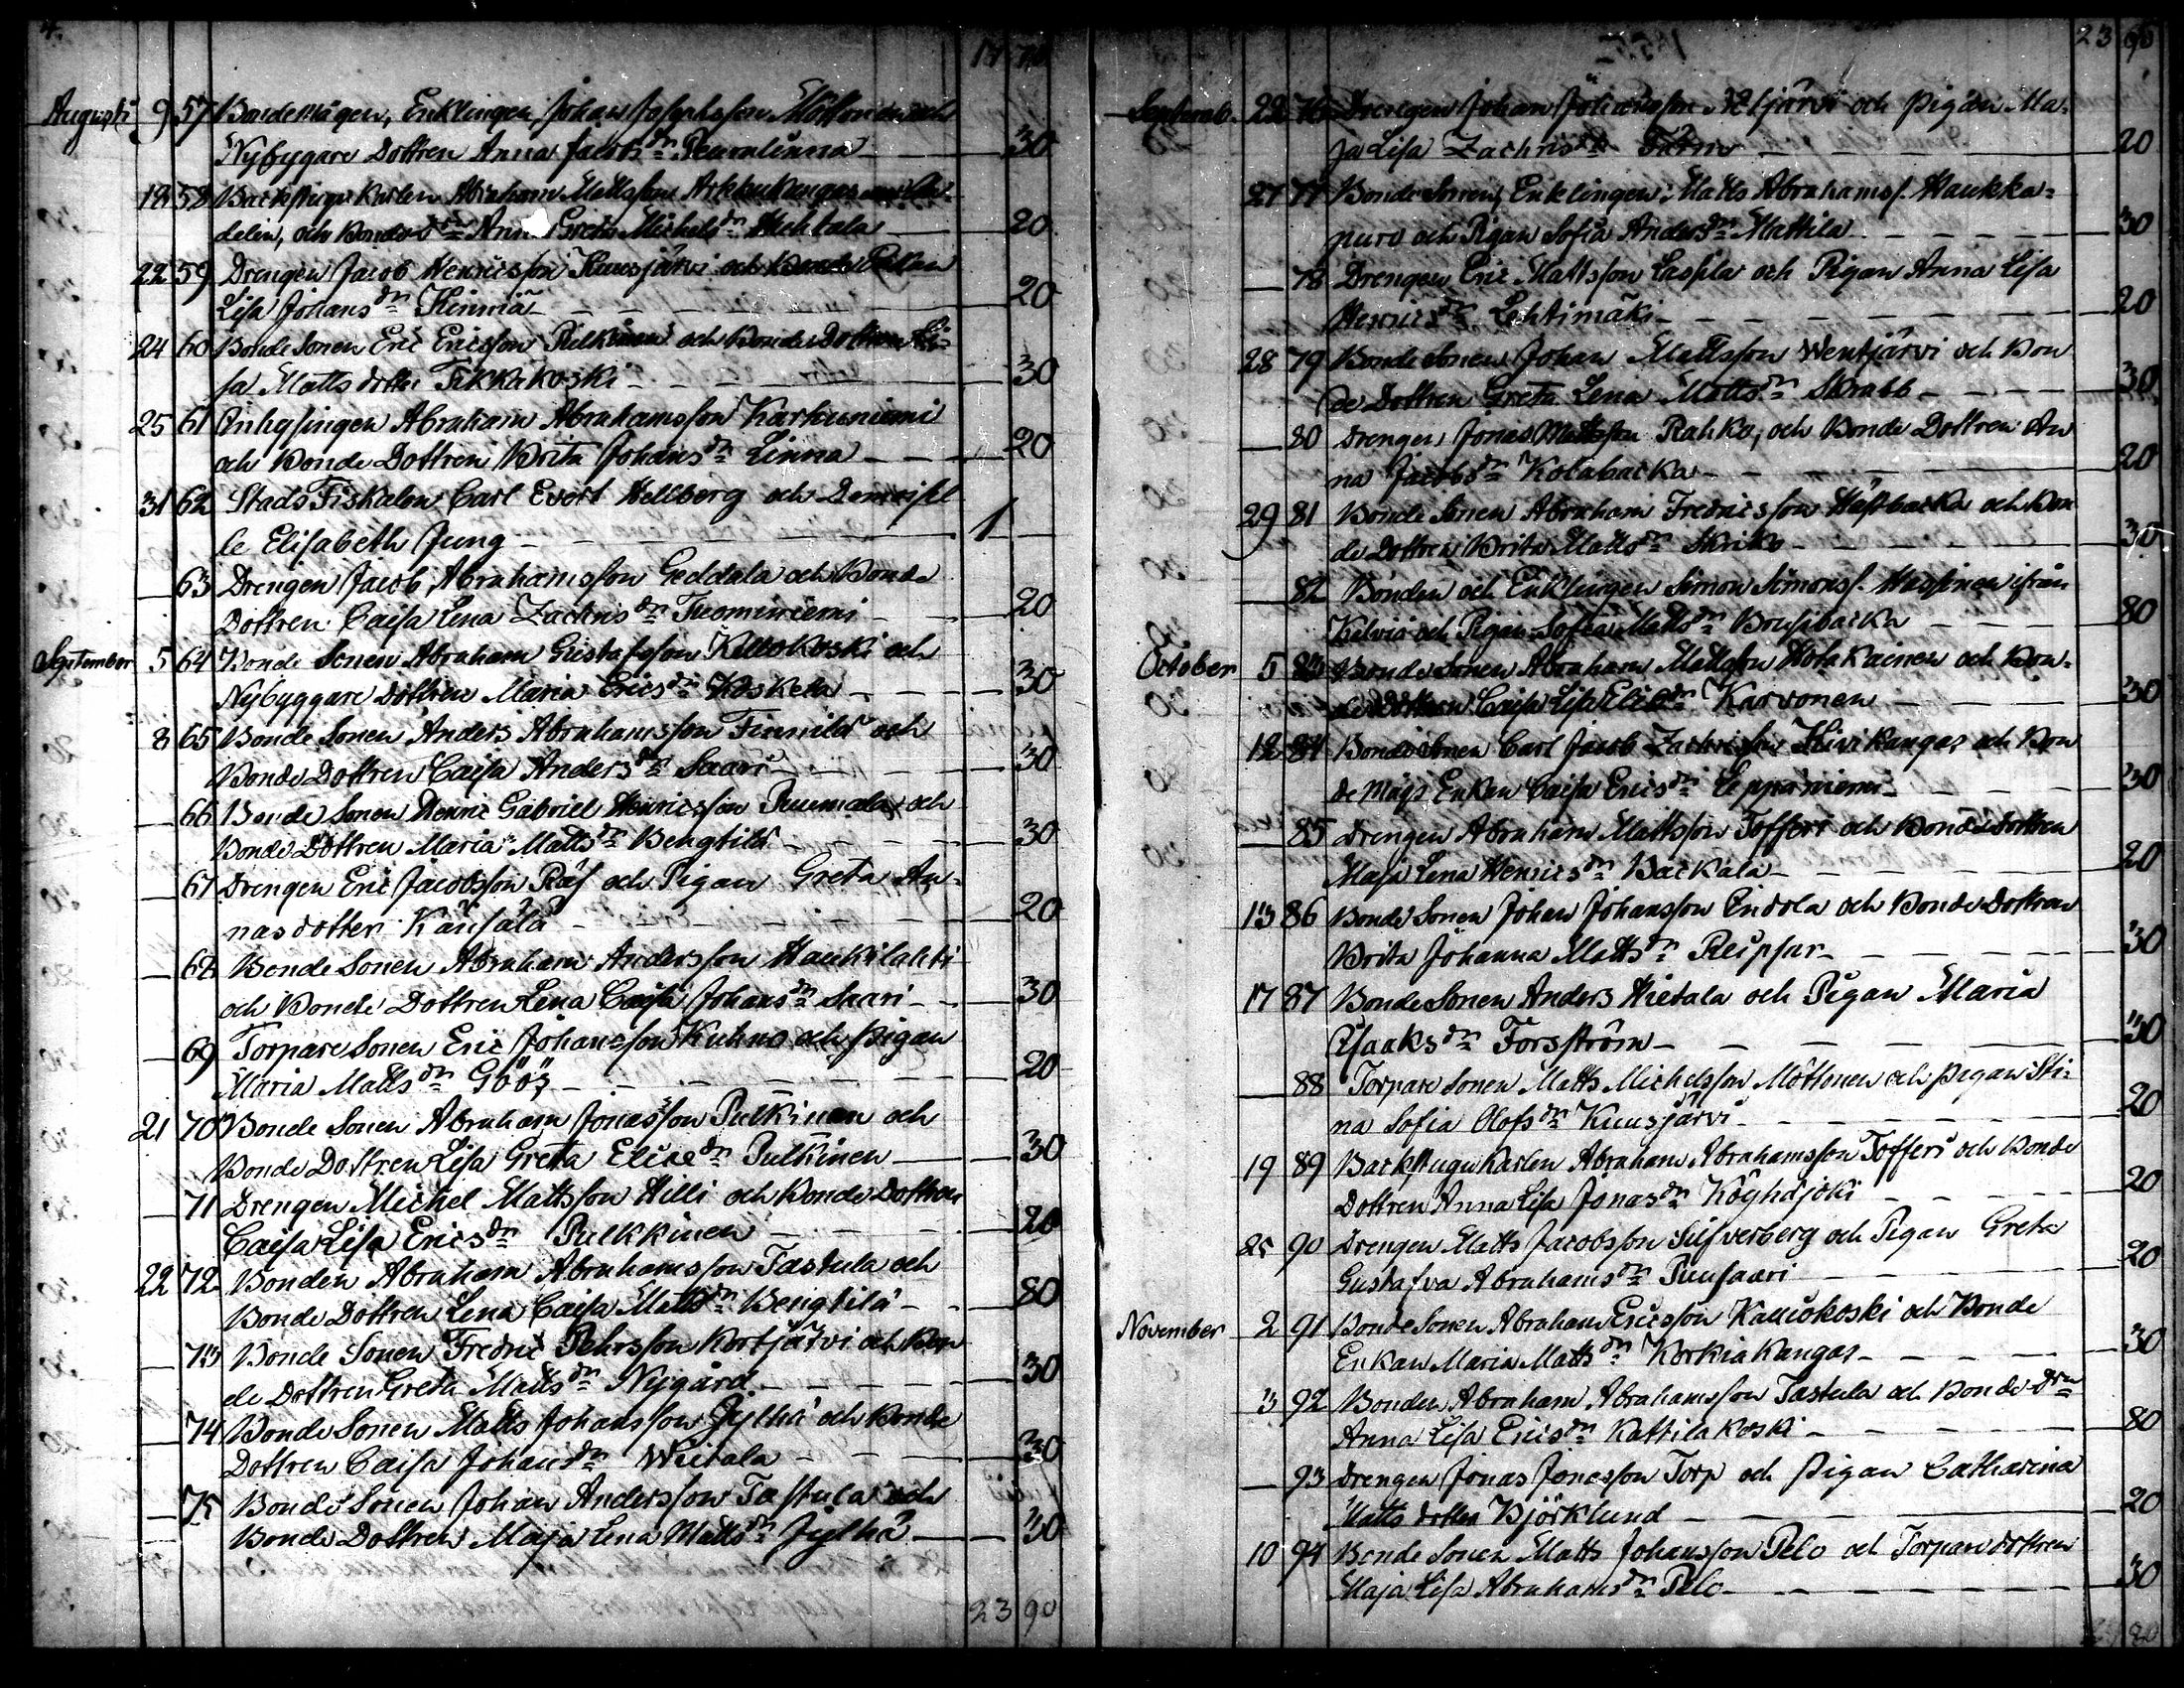 4.
17 70
Augusti 9 57 Bondemågen, Enklingen Johan Josephsson Möttönen och
Nybygare Dottren Anna Jacobs dr Peuralinna 30
19 58 Backstugu Karlen Abraham Mattsson Arkkukangas
delin, och Bonde Anna Greta Michels dr Huhtala 20
22 59 Drengen Jacob Henricsson Kuusjärvi och Pekan
Lisa Johans dr Kinnia 20
24 60 Bonde Sonen Eric Ericsson Pulkkinen och Bonde Dottren Li-
sa Matts dotter Tikkakoski 30
25 61 Inhysingen Abraham Abrahamsson Karhuniemi
och Bonde Dottren Brita Johans dr Linna 20
31 62 Stads Fiskalen Carl Evert Hellberg och Demoisel
le Elisabeth Jung 1
63 Drengen Jacob Abrahamsson Geddala och Bonde
Dottren Caisa Lena Zachris dr Tuominiemi 20
September 5 64 Bonde Sonen Abraham Gustafsson Kellokoski och
Nybyggare Dottren Maria Erics dr Koskela 30
8 65 Bonde Sonen Anders Abrahamsson Finnilä och
Bonde Dottren Caisa Anders dr Saari 30
66 Bonde Sonen Henric Gabriel Henricsson Puumala och
Bonde Dottren Maria Matts dr Bengtilä 30
67 Drengen Eric Jacobsson Räf och Pigan Greta An-
nas dotter Känsälä 20
68 Bonde Sonen Abraham Andersson Haukilahti
och Bonde Dottren Lena Caisa Johans dr Saari 30
69 Torpare Sonen Eric Johansson Kuhno och Pigan
Maria Matts dr Göös 20
21 70 Bonde Sonen Abraham Jonasson Pulkinen och
Bonde Dottren Lisa Greta Elise dr Pulkinen 30
71 Drengen Michel Mattsson Hilli och Bonde Dottren
Caisa Lisa Erics dr Pulkkinen 20
22 72 Bonden Abraham Abrahamsson Tastula och
Bonde Dottren Lena Caisa Matts dr Bengtilä 80
73 Bonde Sonen Fredric Pehrsson Kortjärvi och Bon
de Dottren Greta Matts dr Nygård 30
74 Bonde Sonen Matts Johansson Jylhä och Bonde
Dottren Caisa Johans dr Wiitala 30
75 Bonde Sonen Johan Andersson Tastula och
Bonde Dottren Maja Lena Matts dr Jylhä 30
23 90
23 90
Septemb. 22 76 Drengen Johan Johansson och Pigan Ma-
ja Lisa Zachris dr 20
27 77 Bonde Sonen, Enklingen Matts Abrahamss. Haukka-
puro och Pigan Sofia Anders dr Mattila 30
78 Drengen Eric Mattsson Lassila och Pigan Anna Lisa
Henrics dr Lehtimäki 20
28 79 Bonde Sonen Johan Mattsson Wentjärvi och Bon
de Dottren Greta Lena Matts dr Skrabb 30
80 Drengen Jonas Mattsson Rahko, och Bonde Dottren An
na Jacobs dr Kolabacka 20
29 81 Bonde Sonen Abraham Fredricsson Hästbacka och Bon
de Dottren Brita Matts dr Skriko 30
82 Bonden och Enklingen Simon Simonss. Hassinen ifrån
Kelviå och Pigan Sofia Matts dr Brusibacka 80
October 5 83 Bonde Sonen Abraham Mattsson Hotakainen och Bon-
de Dottren Caisa Lisa Elis dr Karvonen 30
12 84 Bonde Sonen Carl Jacob Zachrisson Kivikangas och Bon
de Mågs Enkan Caisa Erics dr Leppäniemi 30
85 Drengen Abraham Mattsson Tofferi och Bonde Dottren
Maja Lena Henrics dr Backala 20
13 86 Bonde Sonen Johan Johansson Indola och Bonde Dottren
Brita Johanna Matts dr Reipsar 30
17 87 Bonde Sonen Anders Hietala och Pigan Maria
Isaaks dr Forsström 30
88 Torpare Sonen Matts Michelsson Möttönen och Pigan Sti-
na Sofia Olofs dr Kuusjärvi 20
19 89 Backstugu Karlen Abraham Abrahamsson Tofferi och Bonde
Dottren Anna Lisa Jonas dr Köyhäjoki 20
25 90 Drengen Matts Jacobsson Silfverberg och Pigan Greta
Gustafva Abrahams dr Puusaari 20
November 2 91 Bonde Sonen Abraham Ericsson Kaunokoski och Bonde
Enkan Maria Matts dr Korkiakangas 30
3 92 Bonden Abraham Abrahamsson Tastula och Bonde Drn
Anna Lisa Erics dr Kattilakoski 80
93 Drengen Jonas Jonasson Torp och Pigan Catharina
Matts dotter Björklund 20
10 94 Bonde Sonen Matts Johansson Pelo och Torpare Dottren
Maja Lisa Abrahams dr Pelo 30
80